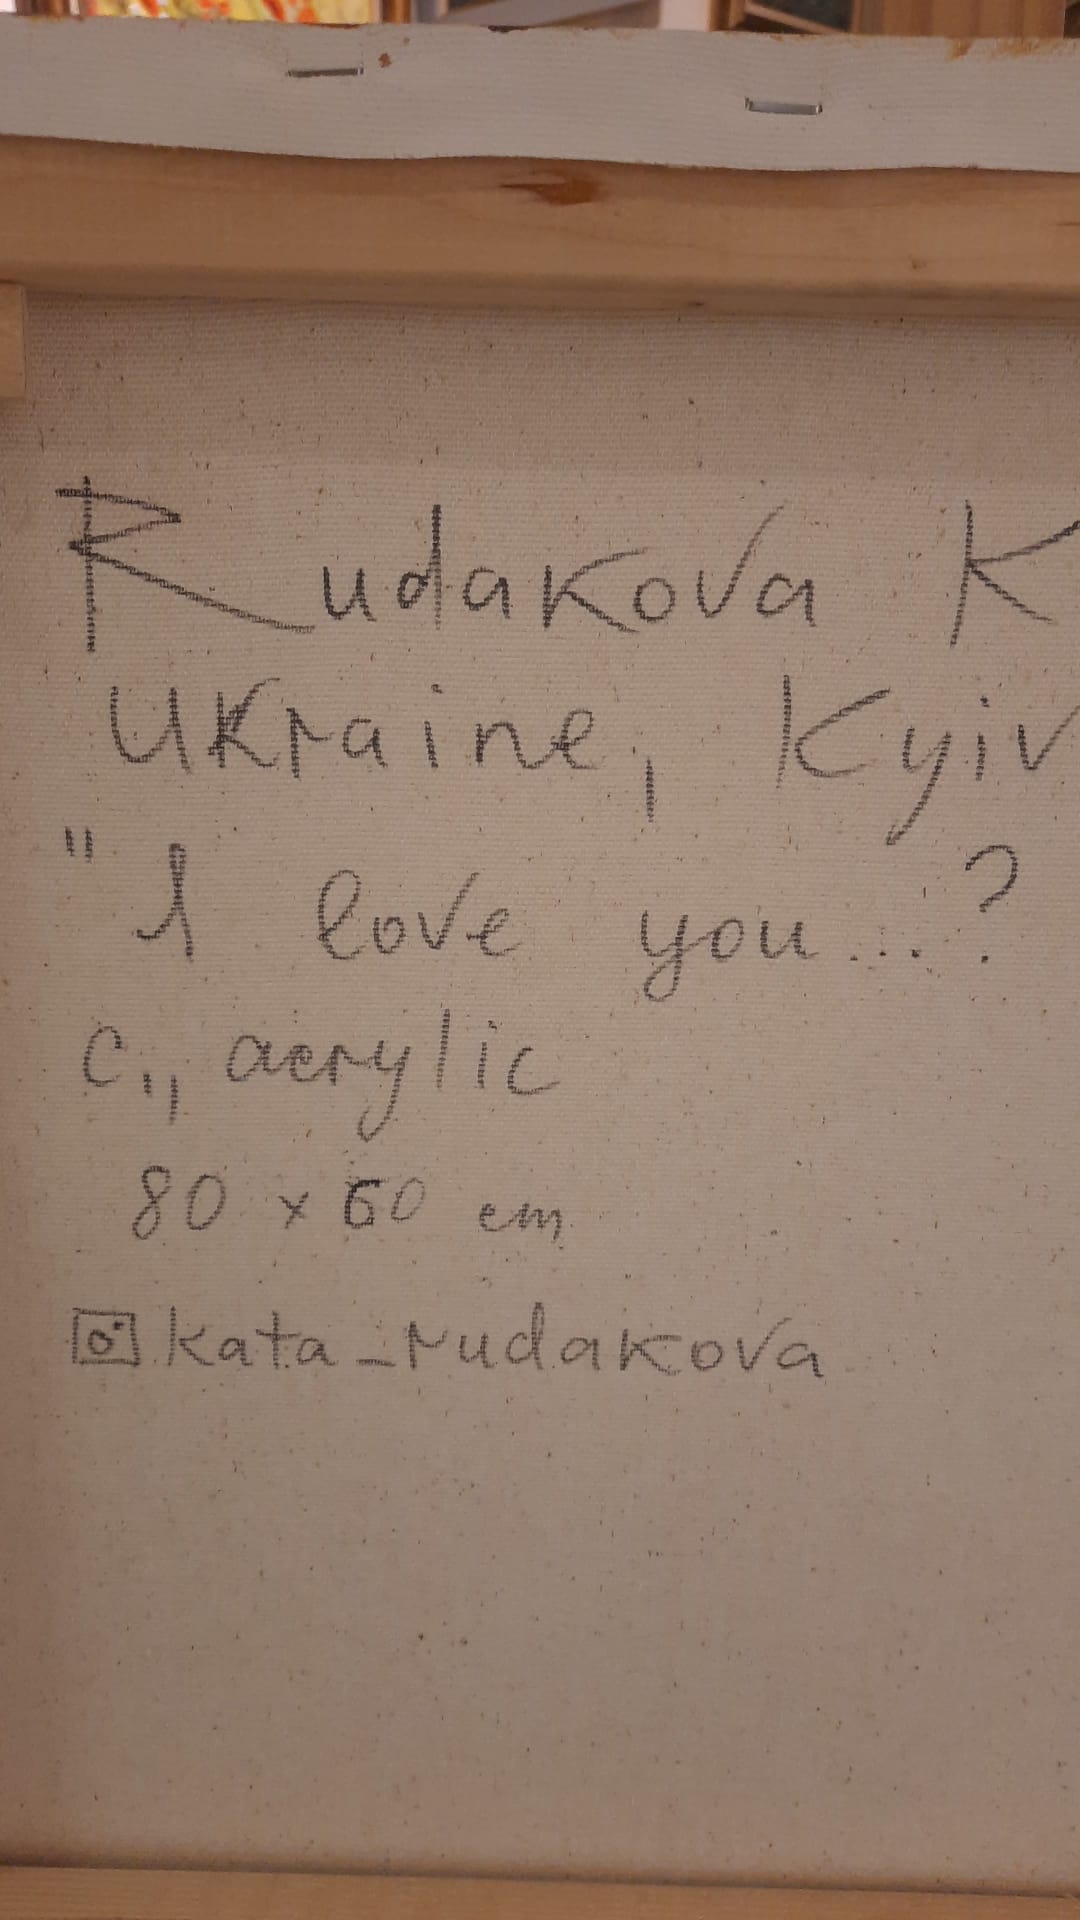 Rudakova K
Ukraine, Kyiv
"I love you...?
c., acrylic
80 x 60 cm
kata_rudakova